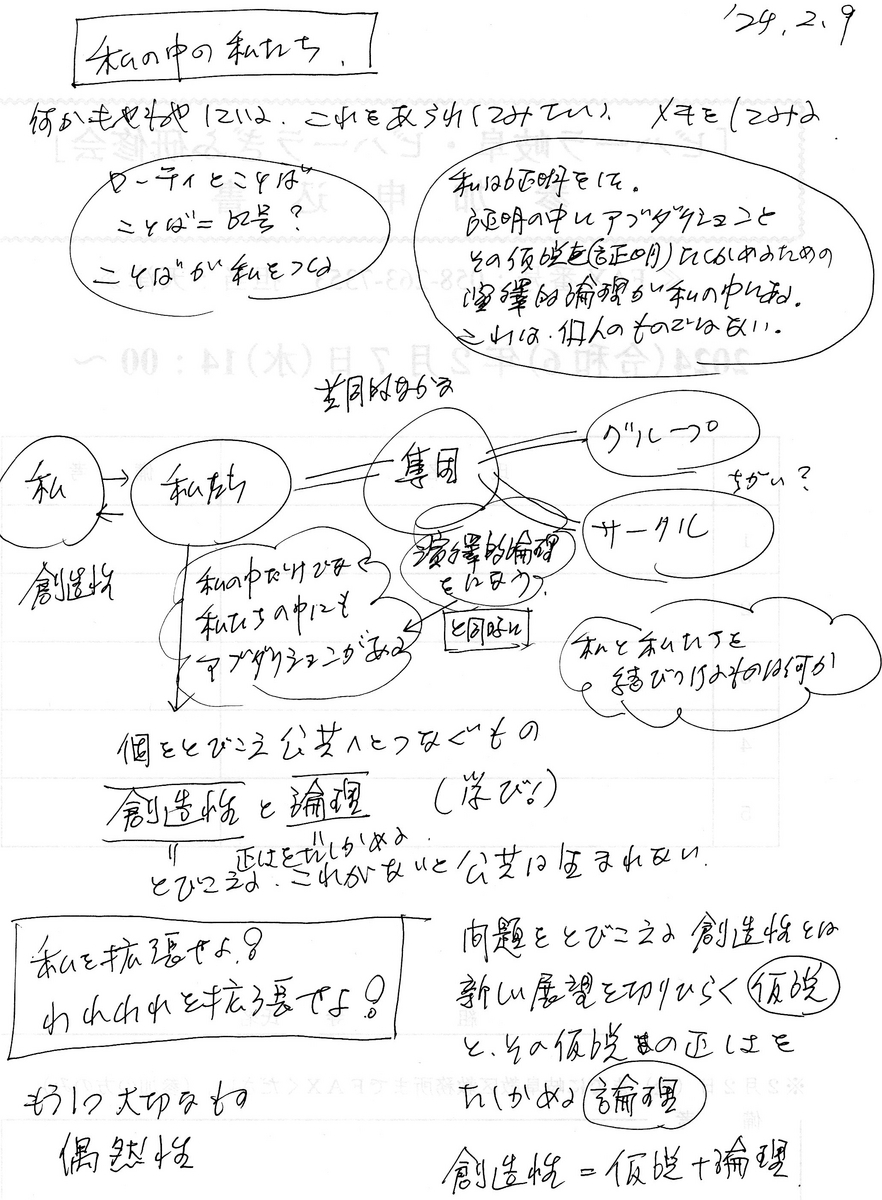 '24.2.9
私の中の私たち.
何かもやもやしている.これをあらわしてみたい.メモをしてみる
ローティとことば
ことば=記号?
ことばが私をつくる
私は証明をした。
証明の中にアブダクションと
その仮説を(証明)たしかめるための
演繹的論理が私の中にある。
これは.個人のものではない.
共同的なかる
私
私たち
集団
グループ
サークル
ちがい?
創造性
私の中だけでなく
私たちの中にも
アブダクションがある
演繹的論理
をになう?
と同時に
私と私たちを
結びつけるものは何か
個をとびこえ公共へとつなぐもの
創造性と論理 (学び!)
正しさをたしかめる.
とびこえる.これがないと公共は生まれない.
私を拡張せよ!
われわれを拡張せよ!
もう1つ大切なもの
偶然性
問題をとびこえる創造性とは
新しい展望を切りひらく仮説
と、その仮説の正しさを
たしかめる論理
創造性=仮説+論理